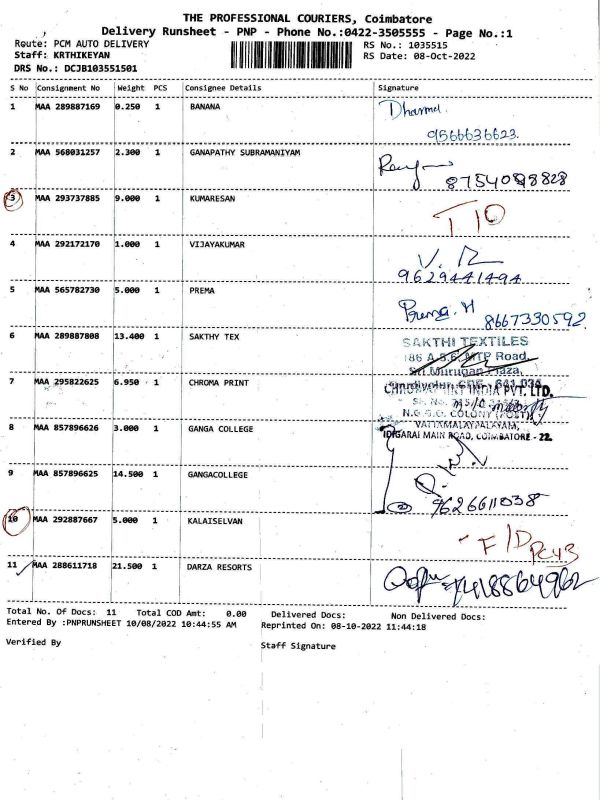 THE PROFESSIONAL COURIERS, Coimbatore
Delivery Runsheet - PNP - Phone No.:0422-3505555 - Page No.:1
Route: PCM AUTO DELIVERY
RS No.: 1035515
Staff: KRTHIKEYAN
RS Date: 08-Oct-2022
DRS No.: DCJB103551501
S No Consignment No Weight PCS Consignee Details Signature
1 MAA 289887169 0.250 1 BANANA
9566636623
2 MAA 568031257 2.300 1 GANAPATHY SUBRAMANIYAM
3 MAA 293737885 9.000 1 KUMARESAN
4 MAA 292172170 1.000 1 VIJAYAKUMAR
9629441494
5 MAA 565782730 5.000 1 PREMA
Prema. M
8667330592
6 MAA 289887808 13.400 1 SAKTHY TEX
SAKTHI TEXTILES
186 A MTP Road,
Sri Murugan Plaza,
7 MAA 295822625 6.950 1 CHROMA PRINT
INDIA PVT. LTD.
N.G.G.O. COLONY (POST)
8 MAA 857896626 3.000 1 GANGA COLLEGE
VATTAMALAYPALAYAM,
IDIGARAI MAIN ROAD, COIMBATORE - 22.
9 MAA 857896625 14.500 1 GANGACOLLEGE
9626611038
10 MAA 292887667 5.000 1 KALAISELVAN
11 MAA 288611718 21.500 1 DARZA RESORTS
Total No. Of Docs: 11 Total COD Amt: 0.00 Delivered Docs: Non Delivered Docs:
Entered By :PNPRUNSHEET 10/08/2022 10:44:55 AM Reprinted On: 08-10-2022 11:44:18
Verified By
Staff Signature